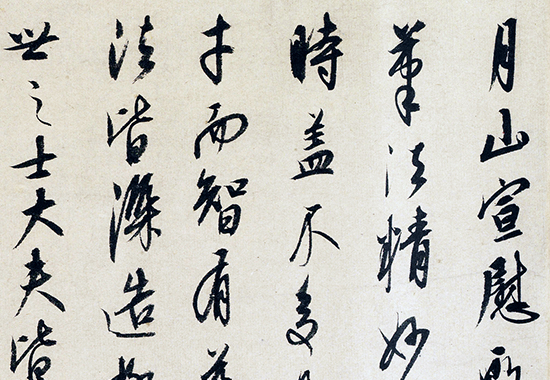 月山宣慰所
筆法精妙
時盖不多見
才而智有
法皆深造
世之士大夫皆